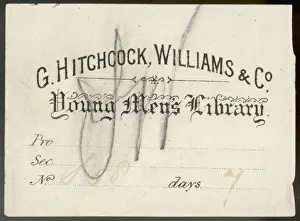 G. HITCHCOCK, WILLIAMS & CO.
Young Mens Library.
Pro
Sec
No. days 7